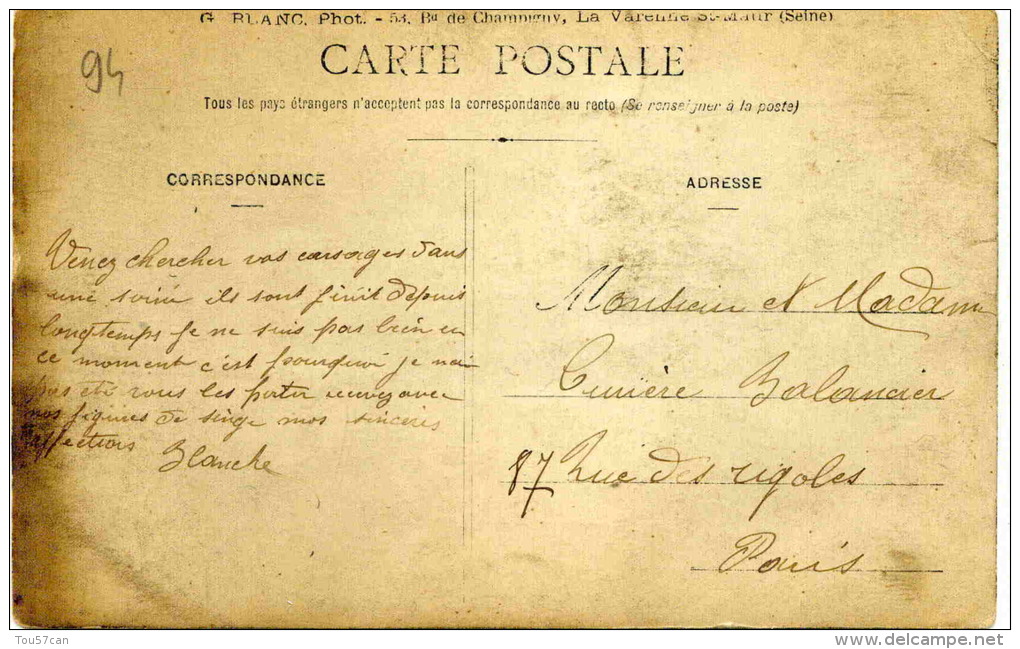 G. BLANC, Phot. - 53, Bd de Champigny, La Varenne St-Maur (Seine)
94
CARTE POSTALE
Tous les pays étrangers n'acceptent pas la correspondance au recto (Se renseigner à la poste)
CORRESPONDANCE
Venez chercher vos corsages dans
une soirée ils sont finit depuis
longtemps je ne suis pas bien en
ce moment c'est pourquoi je nai
pas été vous les porter recevez avec
nos figures de singe mos sincères
affections
Blanche
ADRESSE
Monsieur et Madame
Cuvière Balancier
87 Rue des rigoles
Paris
Tou57can
www.delcampe.net